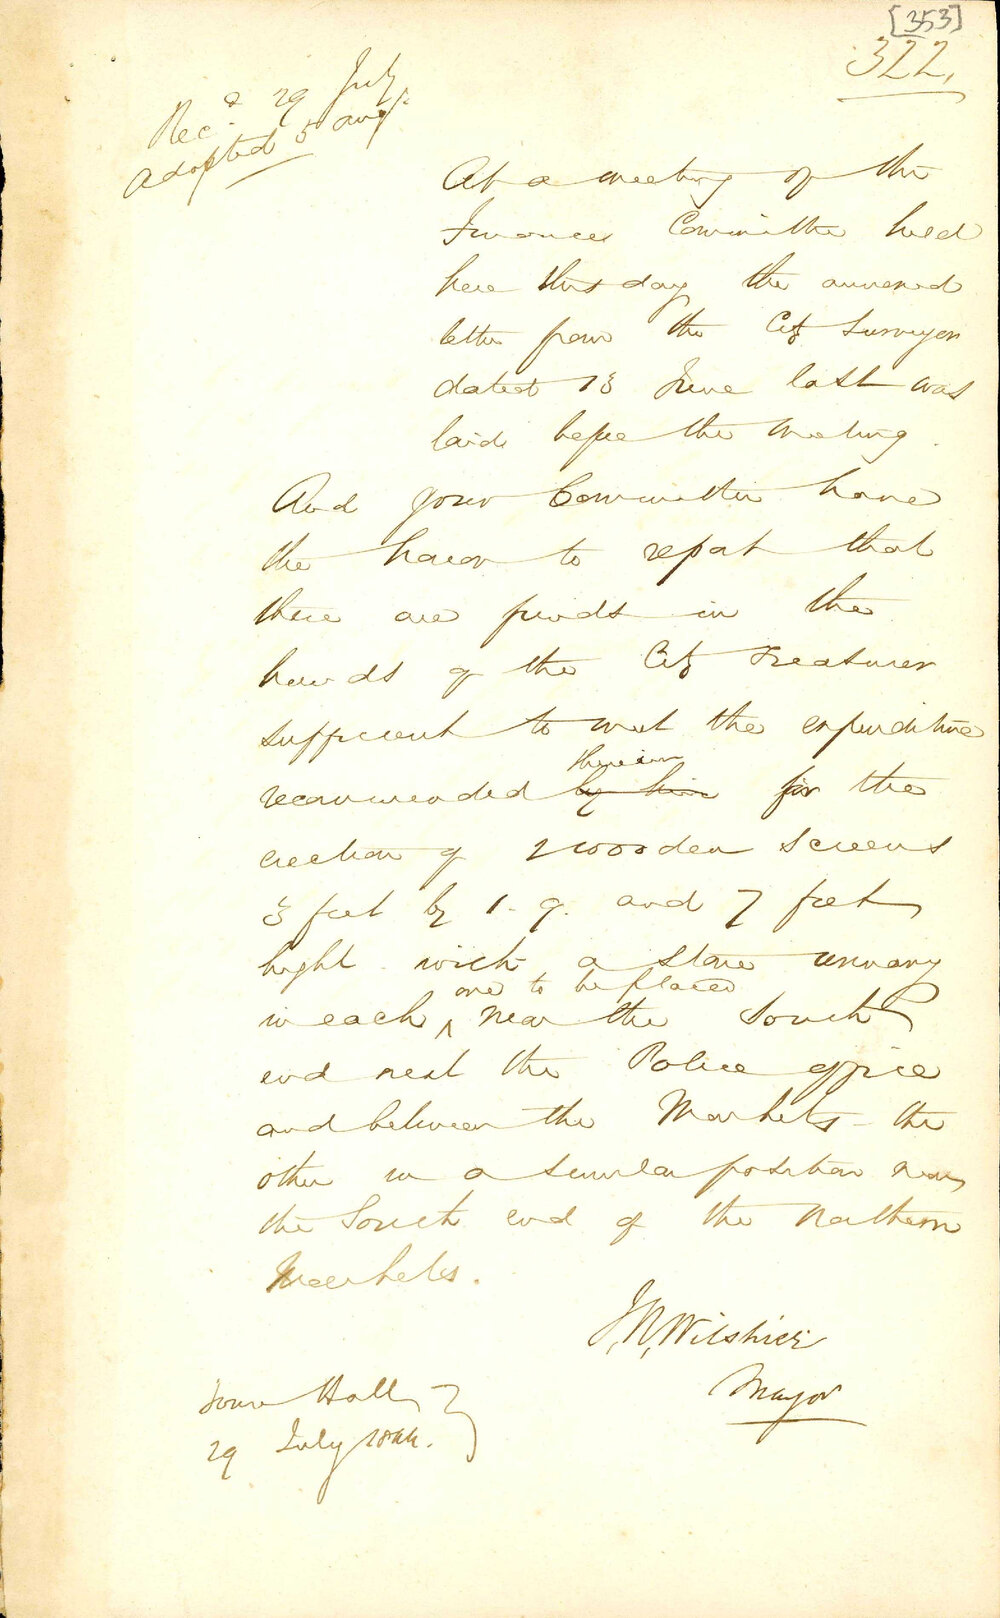 [353]
322.
Rec.d 29 July
adopted 5 aug.
At a meeting of the
Finance Committee held
here this day the annexed
letter from the City Surveyor
dated 13 June last was
laid before the Meeting.
And your Committee have
the honor to report that
there are funds in the
hands of the City Treasurer
sufficient to meet the expenditure
therein
recommended by him for the
erection of 2 wooden screens
3 feet by 1.9. and 7 feet
hight with a stone urinary
one to be placed
in each ^ near the South
end next the Police office
and between the Markets - the
other in a similar position near
the South end of the Northern
Markets.
J.R. Wilshire
Mayor
Town Hall
29 July 1844.